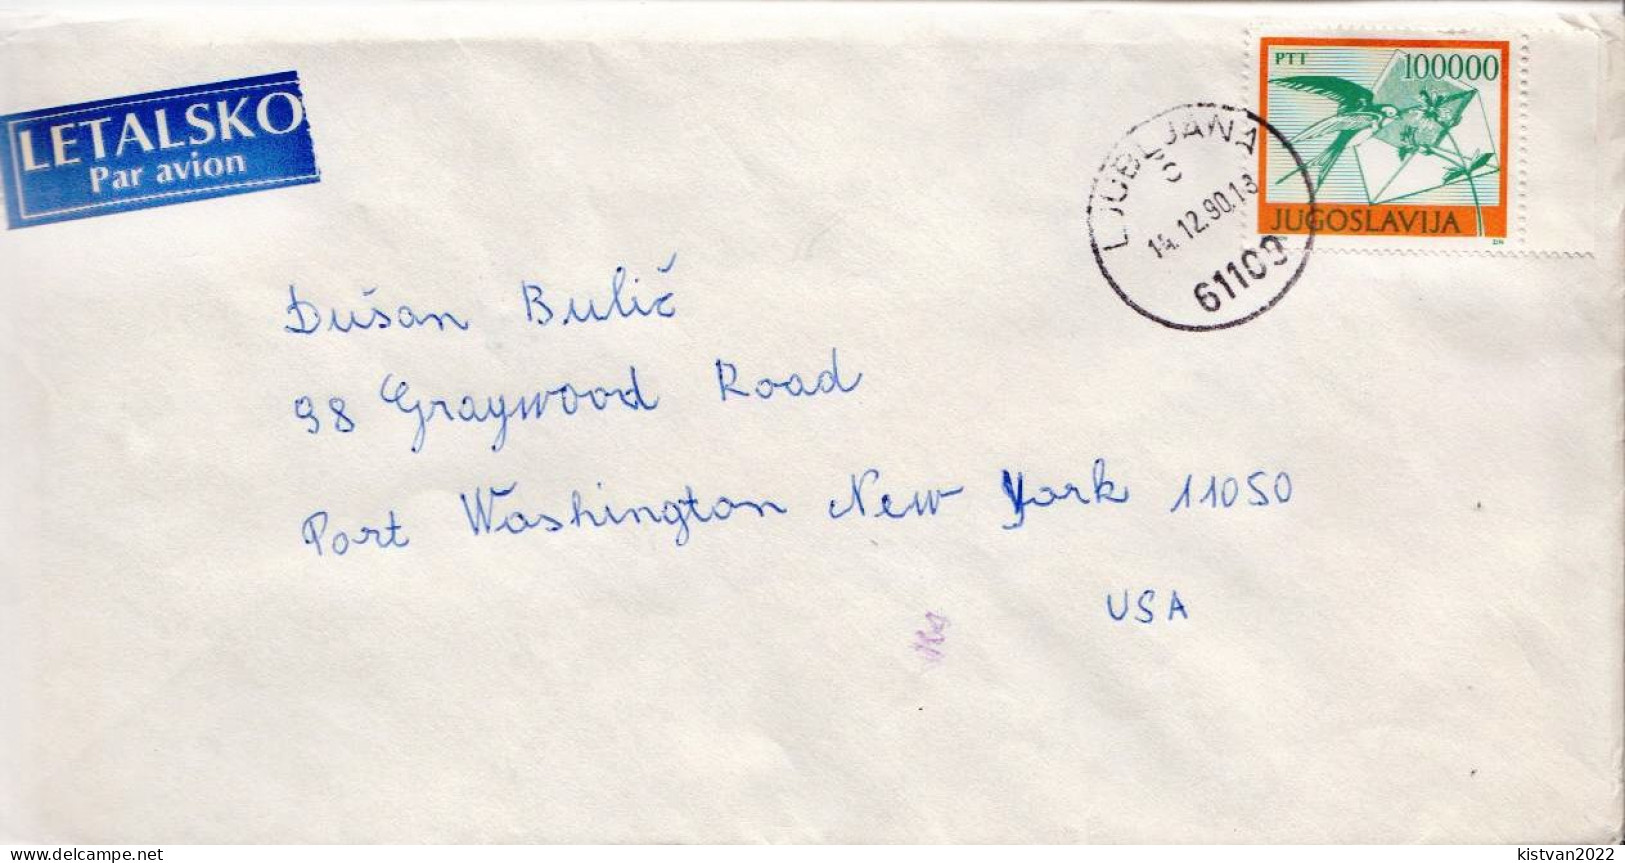 LETALSKO
Par avion
PTT
100000
JUGOSLAVIJA
LJUBLJANA
12.90.18
61109
Dušan Bulič
98 Graywood Road
Port Washington New York 11050
USA
delcampe.net
kistvan2022